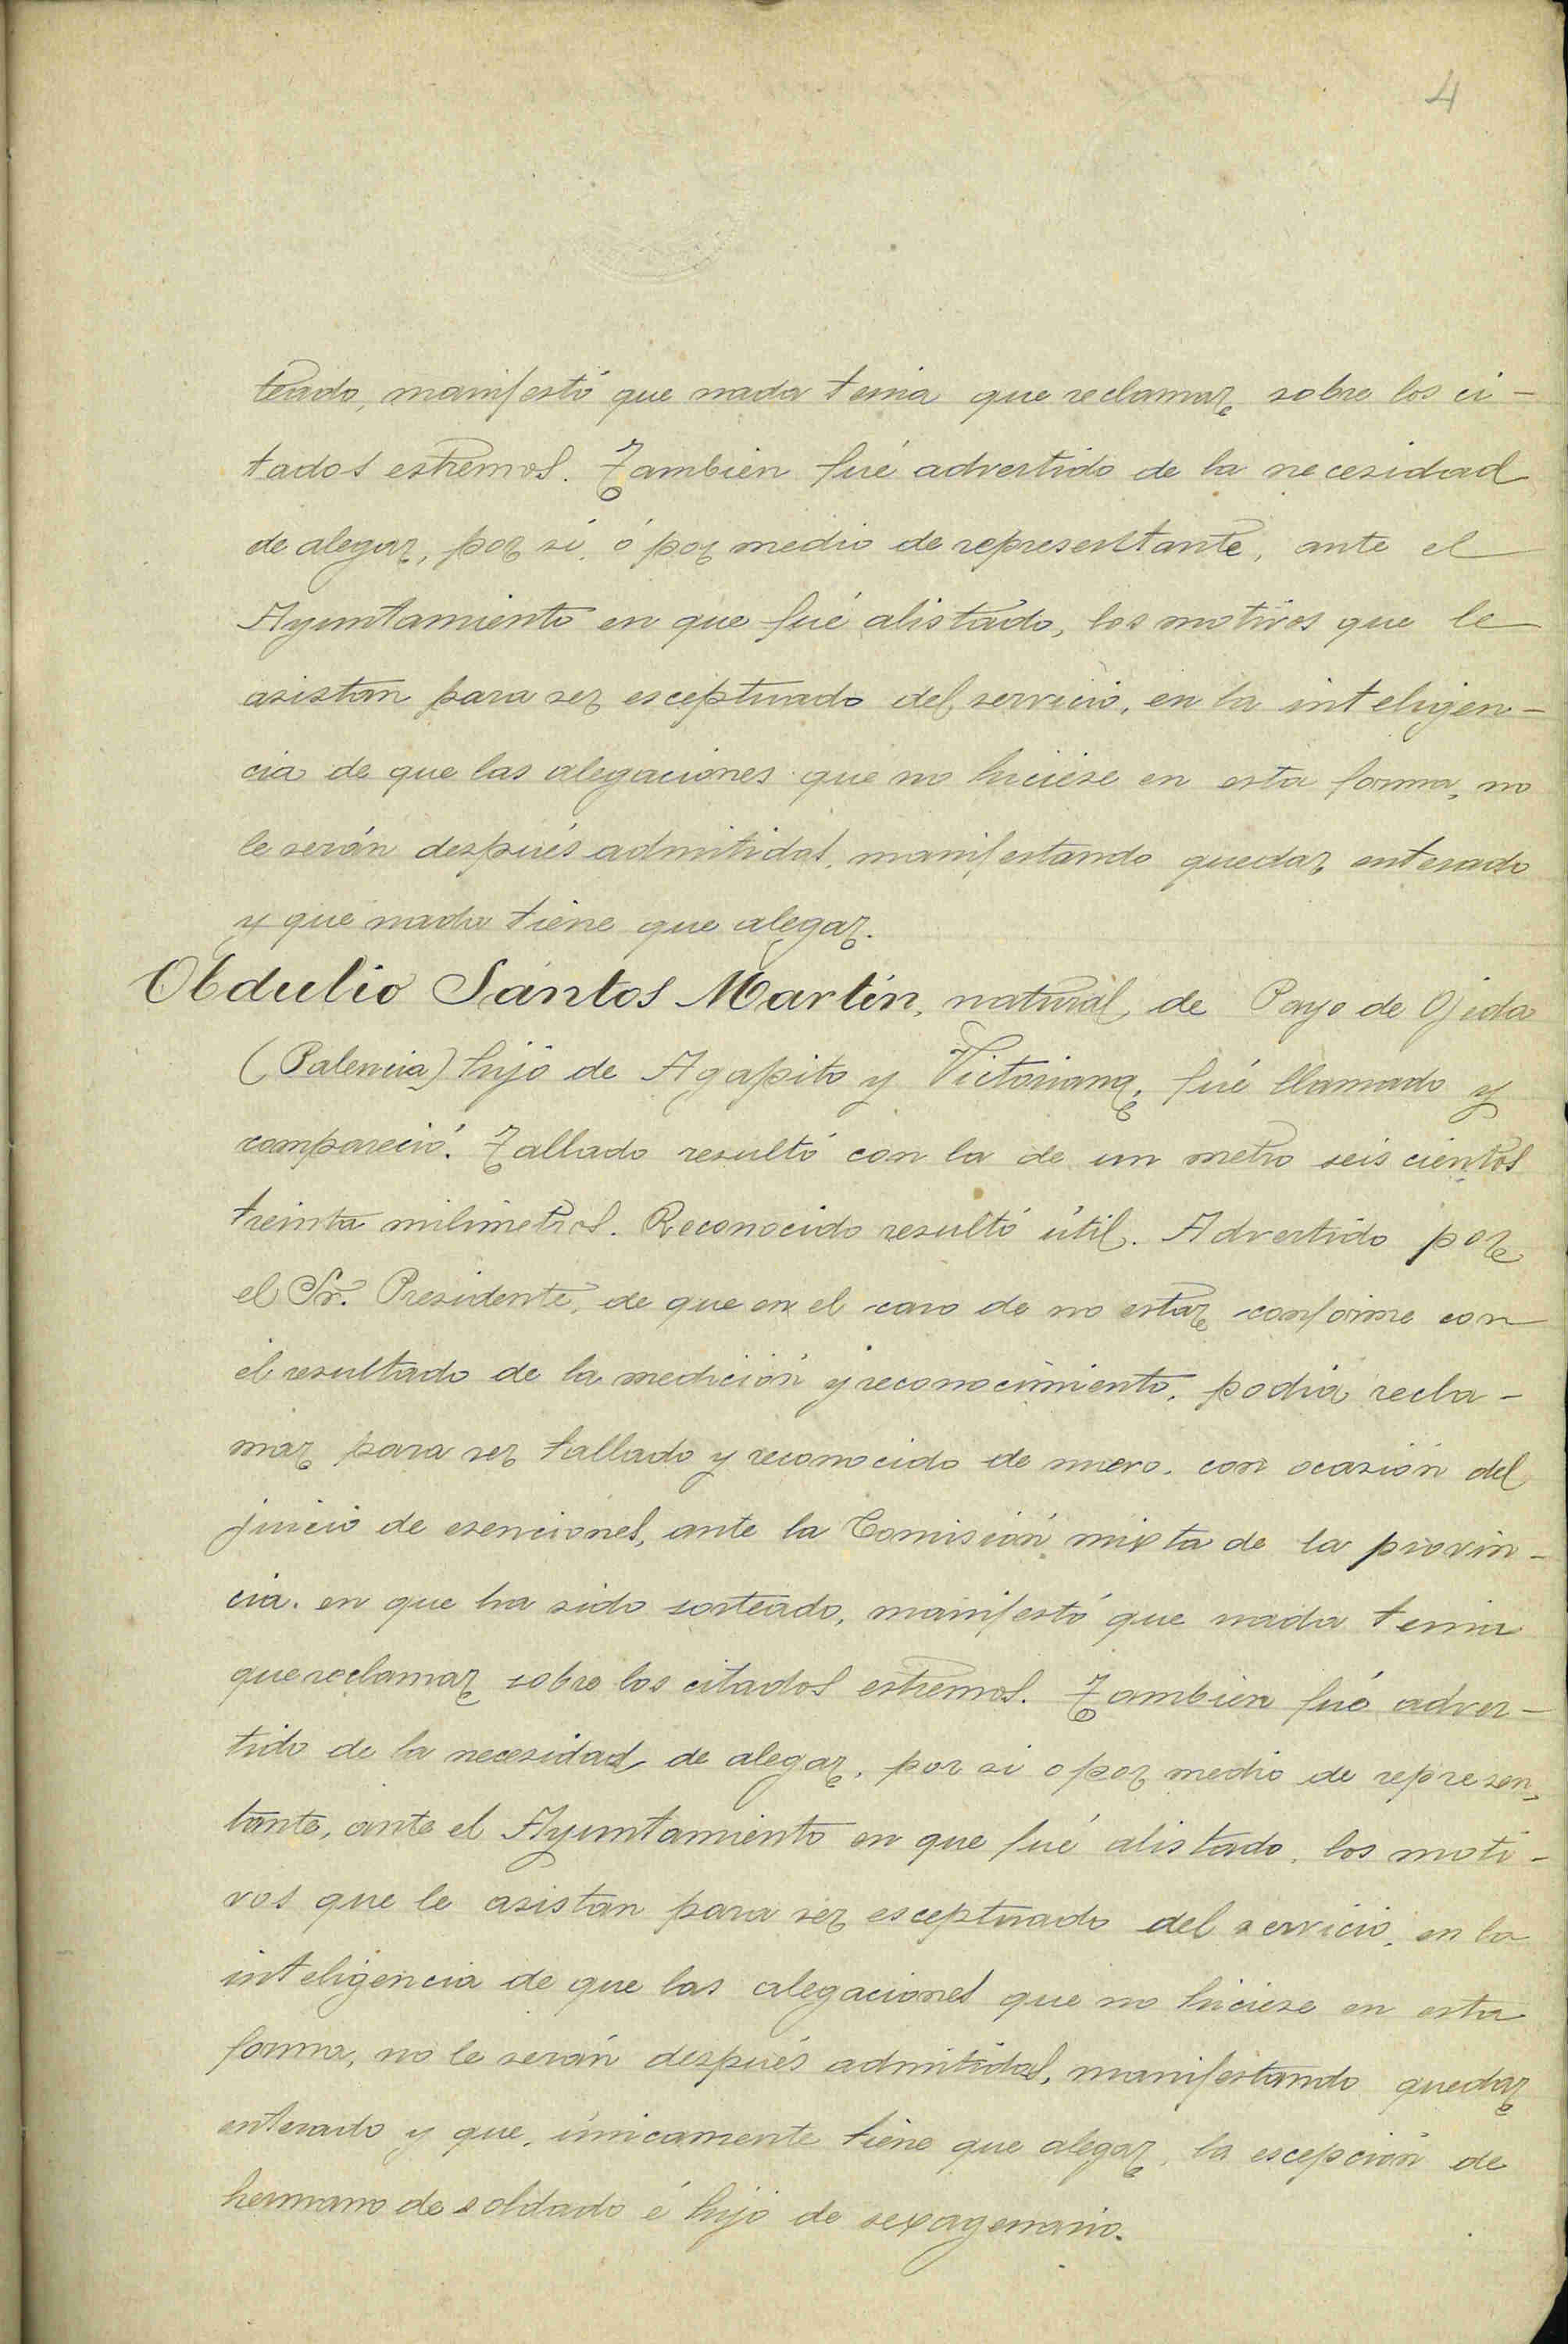 4
teado, manifestó que nada tenia que reclamar, sobre los ci-
tados estremos. Tambien fué advertido de la necesidad
de alegar, por sí ó por medio de representante, ante el
Ayuntamiento en que fué alistado, los motivos que le
asistan para ser esceptuado del servicio, en la inteligen-
cia de que las alegaciones que no hiciese en esta forma, no
le serán después admitidas, manifestando quedar enterado
y que nada tiene que alegar.
Obdulio Santos Martín, natural de Payo de Ojeda
(Palencia) hijo de Agapito y Victoriana, fué llamado y
compareció. Tallado resultó con la de un metro seis cientos
treinta milimetros. Reconocido resultó útil. Advertido por
el Sr. Presidente, de que en el caso de no estar conforme con
el resultado de la medición y reconocimiento, podia recla-
mar para ser tallado y reconocido de nuevo, con ocasión del
juicio de esenciones, ante la Comisión mixta de la provin-
cia, en que ha sido sorteado, manifestó que nada tenia
que reclamar sobre los citados estremos. Tambien fué adver-
tido de la necesidad de alegar, por si o por medio de represen-
tante, ante el Ayuntamiento en que fué alistado, los moti-
vos que le asistan para ser esceptuado del servicio, en la
inteligencia de que las alegaciones que no hiciese en esta
forma, no le serán después admitidas, manifestando quedar
enterado y que, únicamente tiene que alegar, la escepción de
hermano de soldado é hijo de sexagenario.